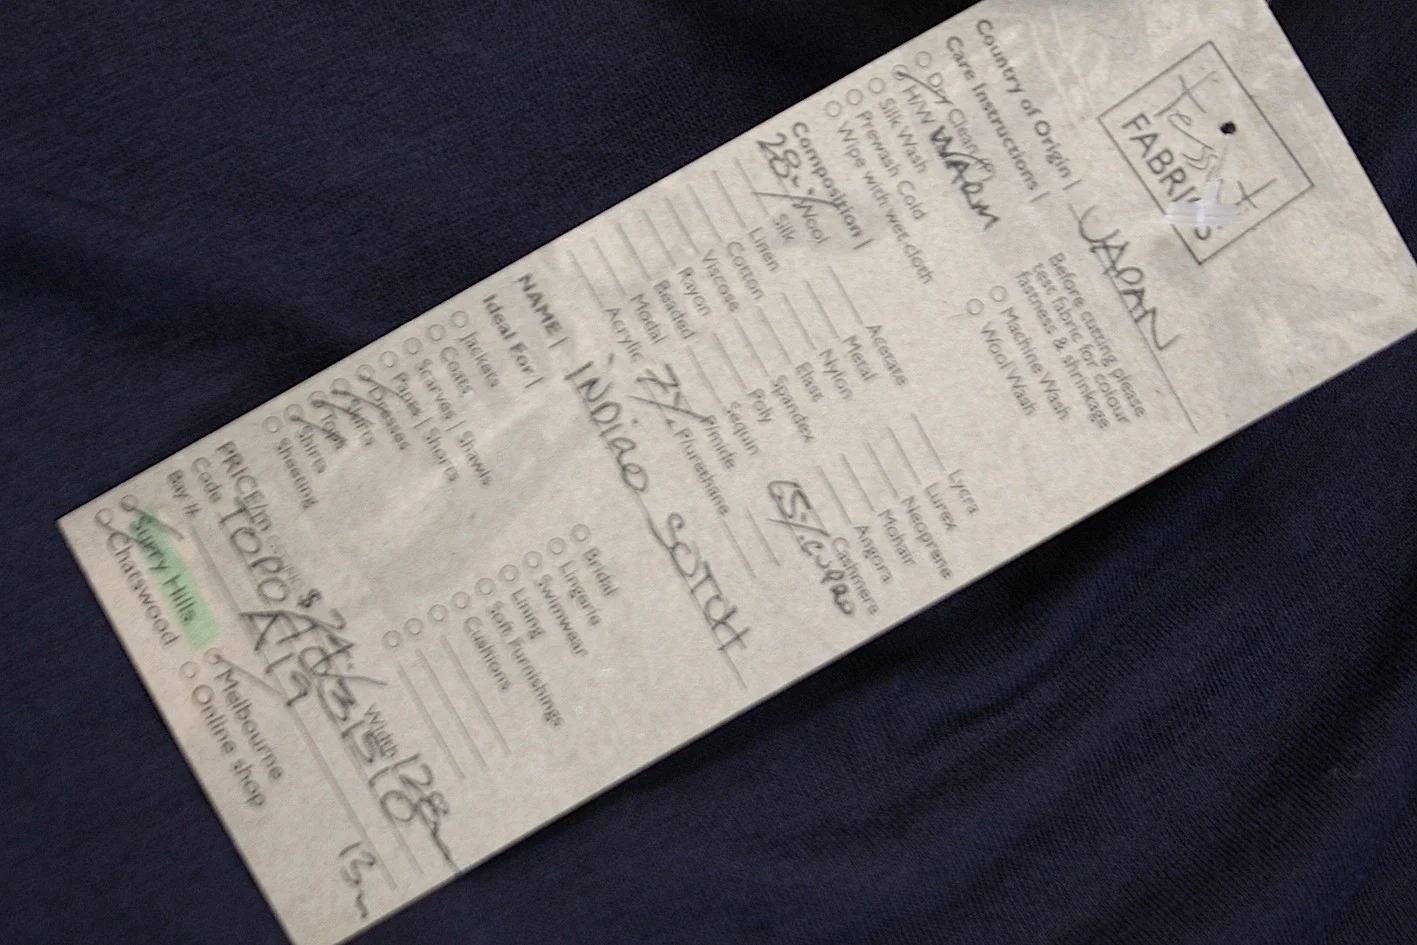 Tessuti
FABRICS
Country of Origin | JAPAN
Care Instructions |
Dry Clean
H/W WARM
Silk Wash
Prewash Cold
Wipe with wet cloth
Before cutting please
test fabric for colour
fastness & shrinkage
Machine Wash
Wool Wash
Composition |
28% Wool
Silk
Linen
Cotton
Viscose
Rayon
Beaded
Modal
Acrylic
Acetate
Metal
Nylon
Elast
Spandex
Poly
Sequin
P/mide
7% P/urethane
Lycra
Lurex
Neoprene
Mohair
Angora
Cashmere
65% CUPRO
NAME | INDIGO SOTCH
Ideal For |
Jackets
Coats
Scarves | Shawls
Pants | Shorts
Dresses
Skirts
Tops
Shirts
Sheeting
Bridal
Lingerie
Swimwear
Lining
Soft Furnishings
Cushions
PRICE/m $ Width 128cm
Code
Bay # A19
Surry Hills
Chatswood
Melbourne
Online shop
13m